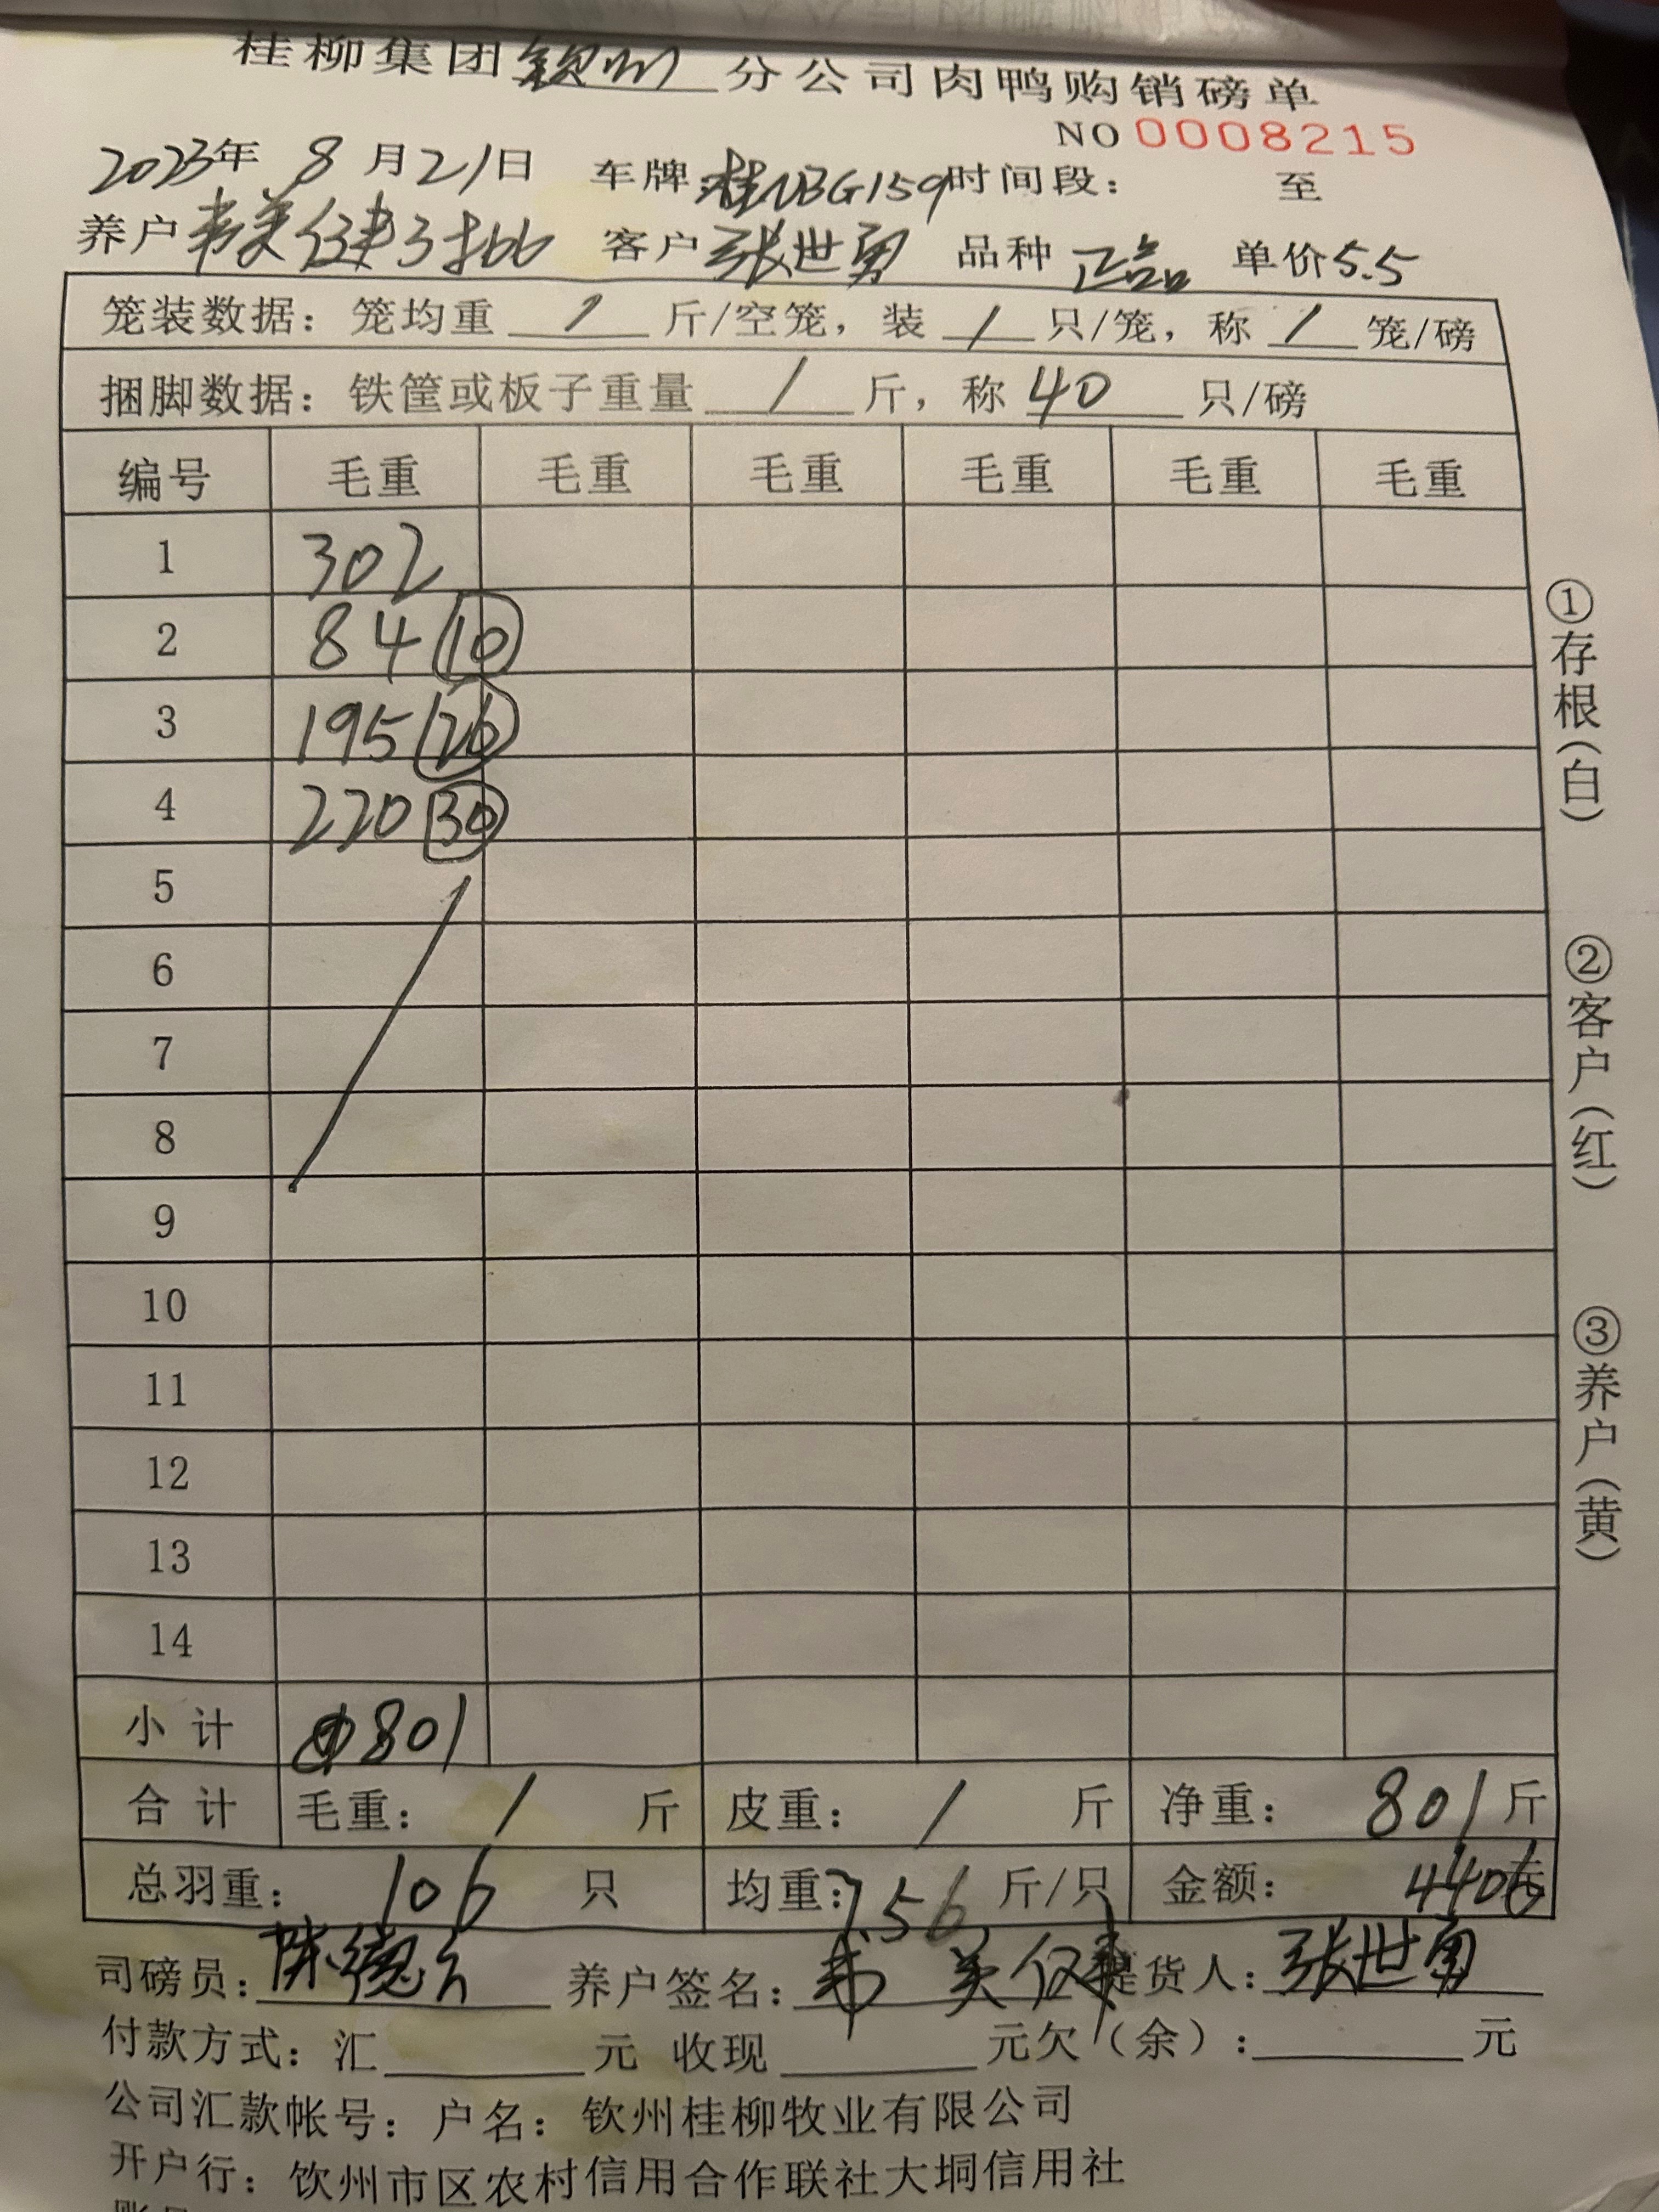 桂柳集团钦州分公司肉鸭购销磅单
NO 0008215
2023年 8 月21日 车牌:桂NBG159时间段: 至
养户韦美健3批 客户张世勇 品种 正品 单价5.5
笼装数据: 笼均重 / 斤/空笼, 装 / 只/笼, 称 / 笼/磅
捆脚数据: 铁筐或板子重量 / 斤, 称 40 只/磅
编号 毛重 毛重 毛重 毛重 毛重 毛重
1 302
2 84 (10)
3 195 (26)
4 220 (30)
5
6
7
8
9
10
11
12
13
14
小 计 801
合 计 毛重: / 斤 皮重: / 斤 净重: 801 斤
总羽重: 106 只 均重:7.56 斤/只 金额: 4406元
司磅员: 陈德 养户签名: 韦美健 提货人: 张世勇
付款方式: 汇 元 收现 元欠(余): 元
公司汇款帐号: 户名: 钦州桂柳牧业有限公司
开户行: 钦州市区农村信用合作联社大垌信用社
①存根(白)
②客户(红)
③养户(黄)